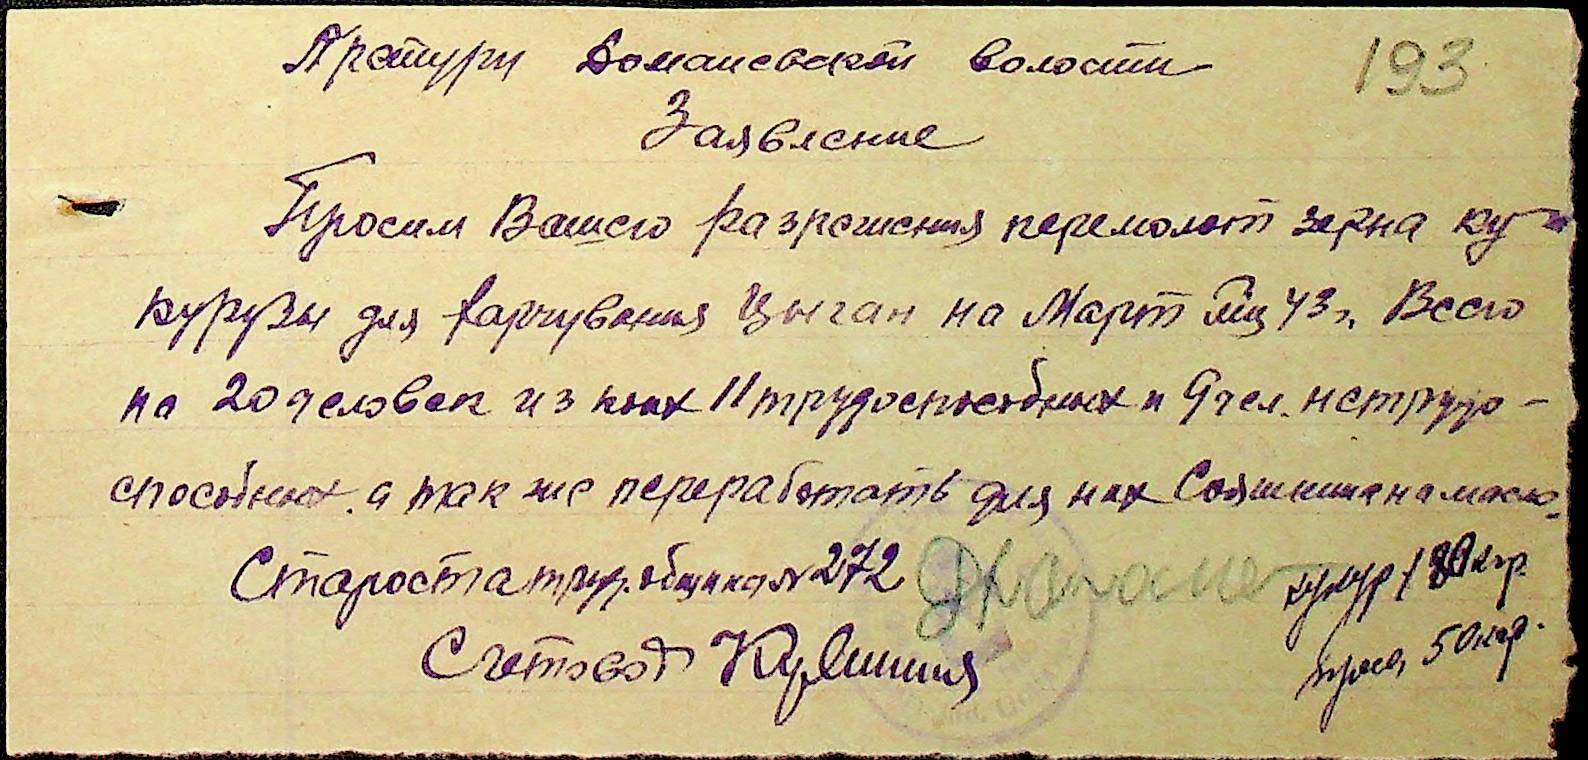 Претури Доманевской волости
193
Заявление
Просим Вашего разрешения перемолот зерна ку-
курузы для харчування Цыган на Март м-ц 43 г. Всего
на 20 человек из коих 11 трудоспособных и 9 чел. нетрудо-
способных. а так же переработать для них Сояшника на масло.
Староста труд. общины № 272
кукур 180 кгр
Счетовод
проса 50 кгр.